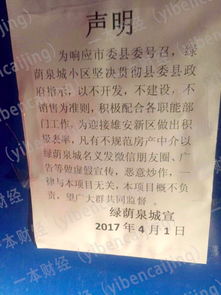 声明
为响应市委县委号召，绿
荫泉城小区坚决贯彻县委县政
府指示，以不开发，不建设，不
销售为准则，积极配合各职能部
门工作。为迎接雄安新区做出积
极表率，凡有不规范房产中介以
绿荫泉城名义发微信朋友圈、广
告等做虚假宣传，恶意炒作，一
律与本项目无关，本项目概不负
责，望广大群共同监督。
绿荫泉城宣
2017年4月1日
一本财经 (yibencaijing)